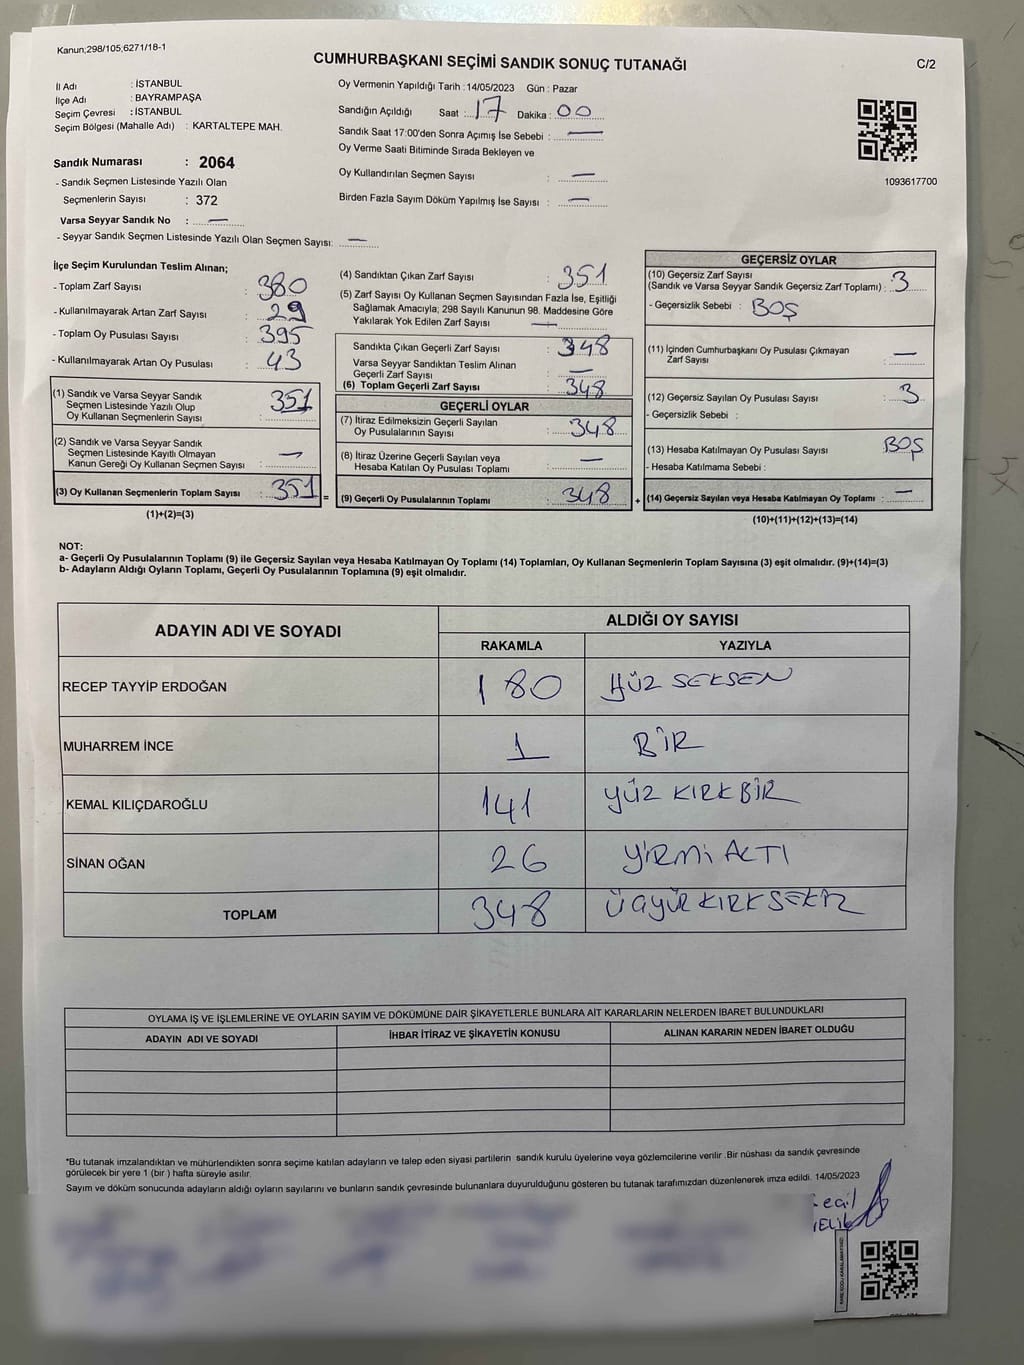 Kanun;298/105;6271/18-1
CUMHURBAŞKANI SEÇİMİ SANDIK SONUÇ TUTANAĞI
C/2
İl Adı : İSTANBUL
İlçe Adı : BAYRAMPAŞA
Seçim Çevresi : İSTANBUL
Seçim Bölgesi (Mahalle Adı) : KARTALTEPE MAH.
Sandık Numarası : 2064
- Sandık Seçmen Listesinde Yazılı Olan
Seçmenlerin Sayısı : 372
Varsa Seyyar Sandık No : —
- Seyyar Sandık Seçmen Listesinde Yazılı Olan Seçmen Sayısı: —
Oy Vermenin Yapıldığı Tarih : 14/05/2023 Gün : Pazar
Sandığın Açıldığı Saat : 17 Dakika : 00
Sandık Saat 17:00'den Sonra Açımış İse Sebebi : —
Oy Verme Saati Bitiminde Sırada Bekleyen ve
Oy Kullandırılan Seçmen Sayısı : —
Birden Fazla Sayım Döküm Yapılmış İse Sayısı : —
1093617700
İlçe Seçim Kurulundan Teslim Alınan;
- Toplam Zarf Sayısı : 380
- Kullanılmayarak Artan Zarf Sayısı : 29
- Toplam Oy Pusulası Sayısı : 395
- Kullanılmayarak Artan Oy Pusulası : 43
(1) Sandık ve Varsa Seyyar Sandık
Seçmen Listesinde Yazılı Olup
Oy Kullanan Seçmenlerin Sayısı : 351
(2) Sandık ve Varsa Seyyar Sandık
Seçmen Listesinde Kayıtlı Olmayan
Kanun Gereği Oy Kullanan Seçmen Sayısı : —
(3) Oy Kullanan Seçmenlerin Toplam Sayısı : 351 =
(1)+(2)=(3)
(4) Sandıktan Çıkan Zarf Sayısı : 351
(5) Zarf Sayısı Oy Kullanan Seçmen Sayısından Fazla İse, Eşitliği
Sağlamak Amacıyla, 298 Sayılı Kanunun 98. Maddesine Göre
Yakılarak Yok Edilen Zarf Sayısı : —
Sandıkta Çıkan Geçerli Zarf Sayısı : 348
Varsa Seyyar Sandıktan Teslim Alınan
Geçerli Zarf Sayısı : —
(6) Toplam Geçerli Zarf Sayısı : 348
GEÇERLİ OYLAR
(7) İtiraz Edilmeksizin Geçerli Sayılan
Oy Pusulalarının Sayısı : 348
(8) İtiraz Üzerine Geçerli Sayılan veya
Hesaba Katılan Oy Pusulası Toplamı : —
(9) Geçerli Oy Pusulalarının Toplamı : 348 +
GEÇERSİZ OYLAR
(10) Geçersiz Zarf Sayısı
(Sandık ve Varsa Seyyar Sandık Geçersiz Zarf Toplamı) : 3
- Geçersizlik Sebebi : BOŞ
(11) İçinden Cumhurbaşkanı Oy Pusulası Çıkmayan
Zarf Sayısı : —
(12) Geçersiz Sayılan Oy Pusulası Sayısı : 3
- Geçersizlik Sebebi :
(13) Hesaba Katılmayan Oy Pusulası Sayısı : BOŞ
- Hesaba Katılmama Sebebi :
(14) Geçersiz Sayılan veya Hesaba Katılmayan Oy Toplamı : —
(10)+(11)+(12)+(13)=(14)
NOT:
a- Geçerli Oy Pusulalarının Toplamı (9) ile Geçersiz Sayılan veya Hesaba Katılmayan Oy Toplamı (14) Toplamları, Oy Kullanan Seçmenlerin Toplam Sayısına (3) eşit olmalıdır. (9)+(14)=(3)
b- Adayların Aldığı Oyların Toplamı, Geçerli Oy Pusulalarının Toplamına (9) eşit olmalıdır.
ADAYIN ADI VE SOYADI
ALDIĞI OY SAYISI
RAKAMLA YAZIYLA
RECEP TAYYİP ERDOĞAN 180 YÜZ SEKSEN
MUHARREM İNCE 1 BİR
KEMAL KILIÇDAROĞLU 141 YÜZ KIRK BİR
SİNAN OĞAN 26 YİRMİ ALTI
TOPLAM 348 ÜÇYÜZ KIRK SEKİZ
OYLAMA İŞ VE İŞLEMLERİNE VE OYLARIN SAYIM VE DÖKÜMÜNE DAİR ŞİKAYETLERLE BUNLARA AİT KARARLARIN NELERDEN İBARET BULUNDUKLARI
ADAYIN ADI VE SOYADI İHBAR İTİRAZ VE ŞİKAYETİN KONUSU ALINAN KARARIN NEDEN İBARET OLDUĞU
*Bu tutanak imzalandıktan ve mühürlendikten sonra seçime katılan adayların ve talep eden siyasi partilerin sandık kurulu üyelerine veya gözlemcilerine verilir .Bir nüshası da sandık çevresinde
görülecek bir yere 1 (bir ) hafta süreyle asılır.
Sayım ve döküm sonucunda adayların aldığı oyların sayılarını ve bunların sandık çevresinde bulunanlara duyurulduğunu gösteren bu tutanak tarafımızdan düzenlenerek imza edildi. 14/05/2023